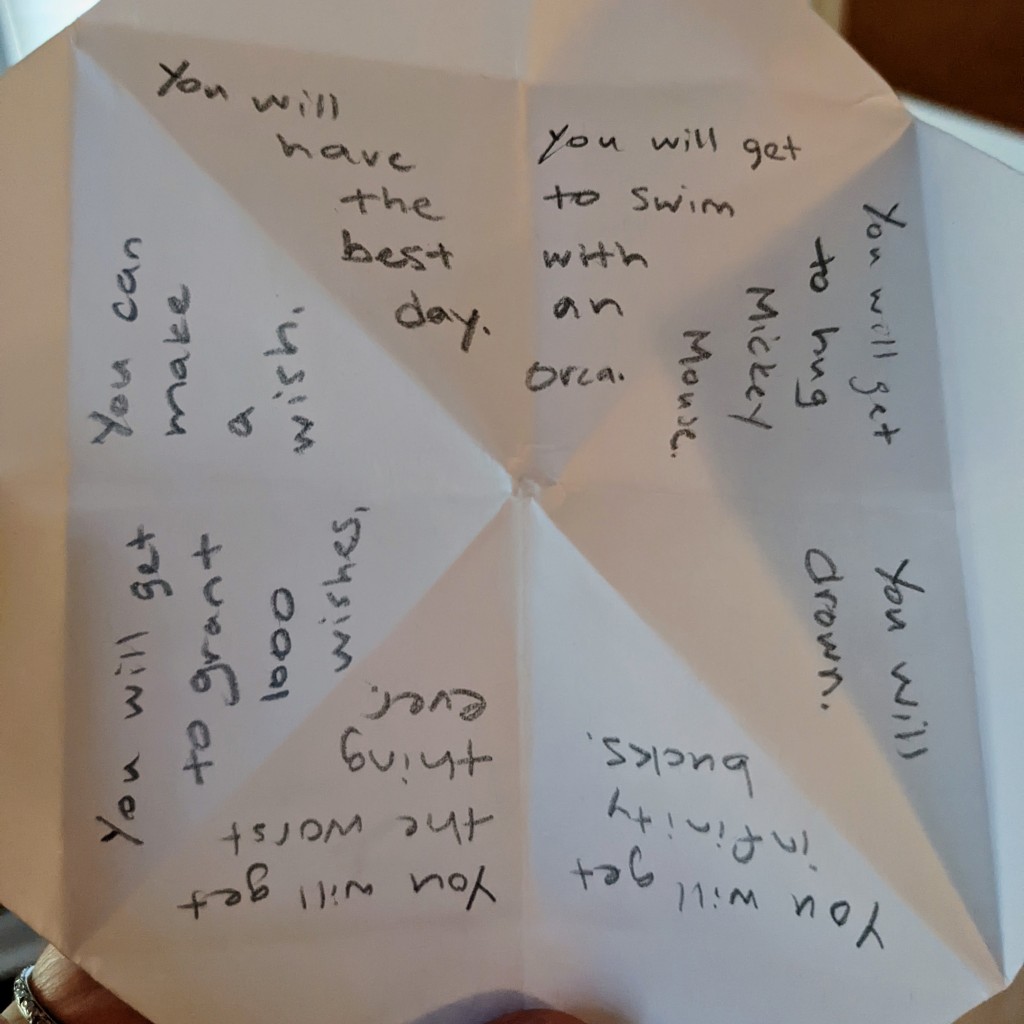 You will
have
the
best
day.
You will get
to swim
with
an
orca.
You will get
to hug
Mickey
Mouse.
You will
drown.
You will get
infinity
bucks.
You will get
the worst
thing
ever.
You will get
to grant
1000
wishes.
You can
make
a
wish.